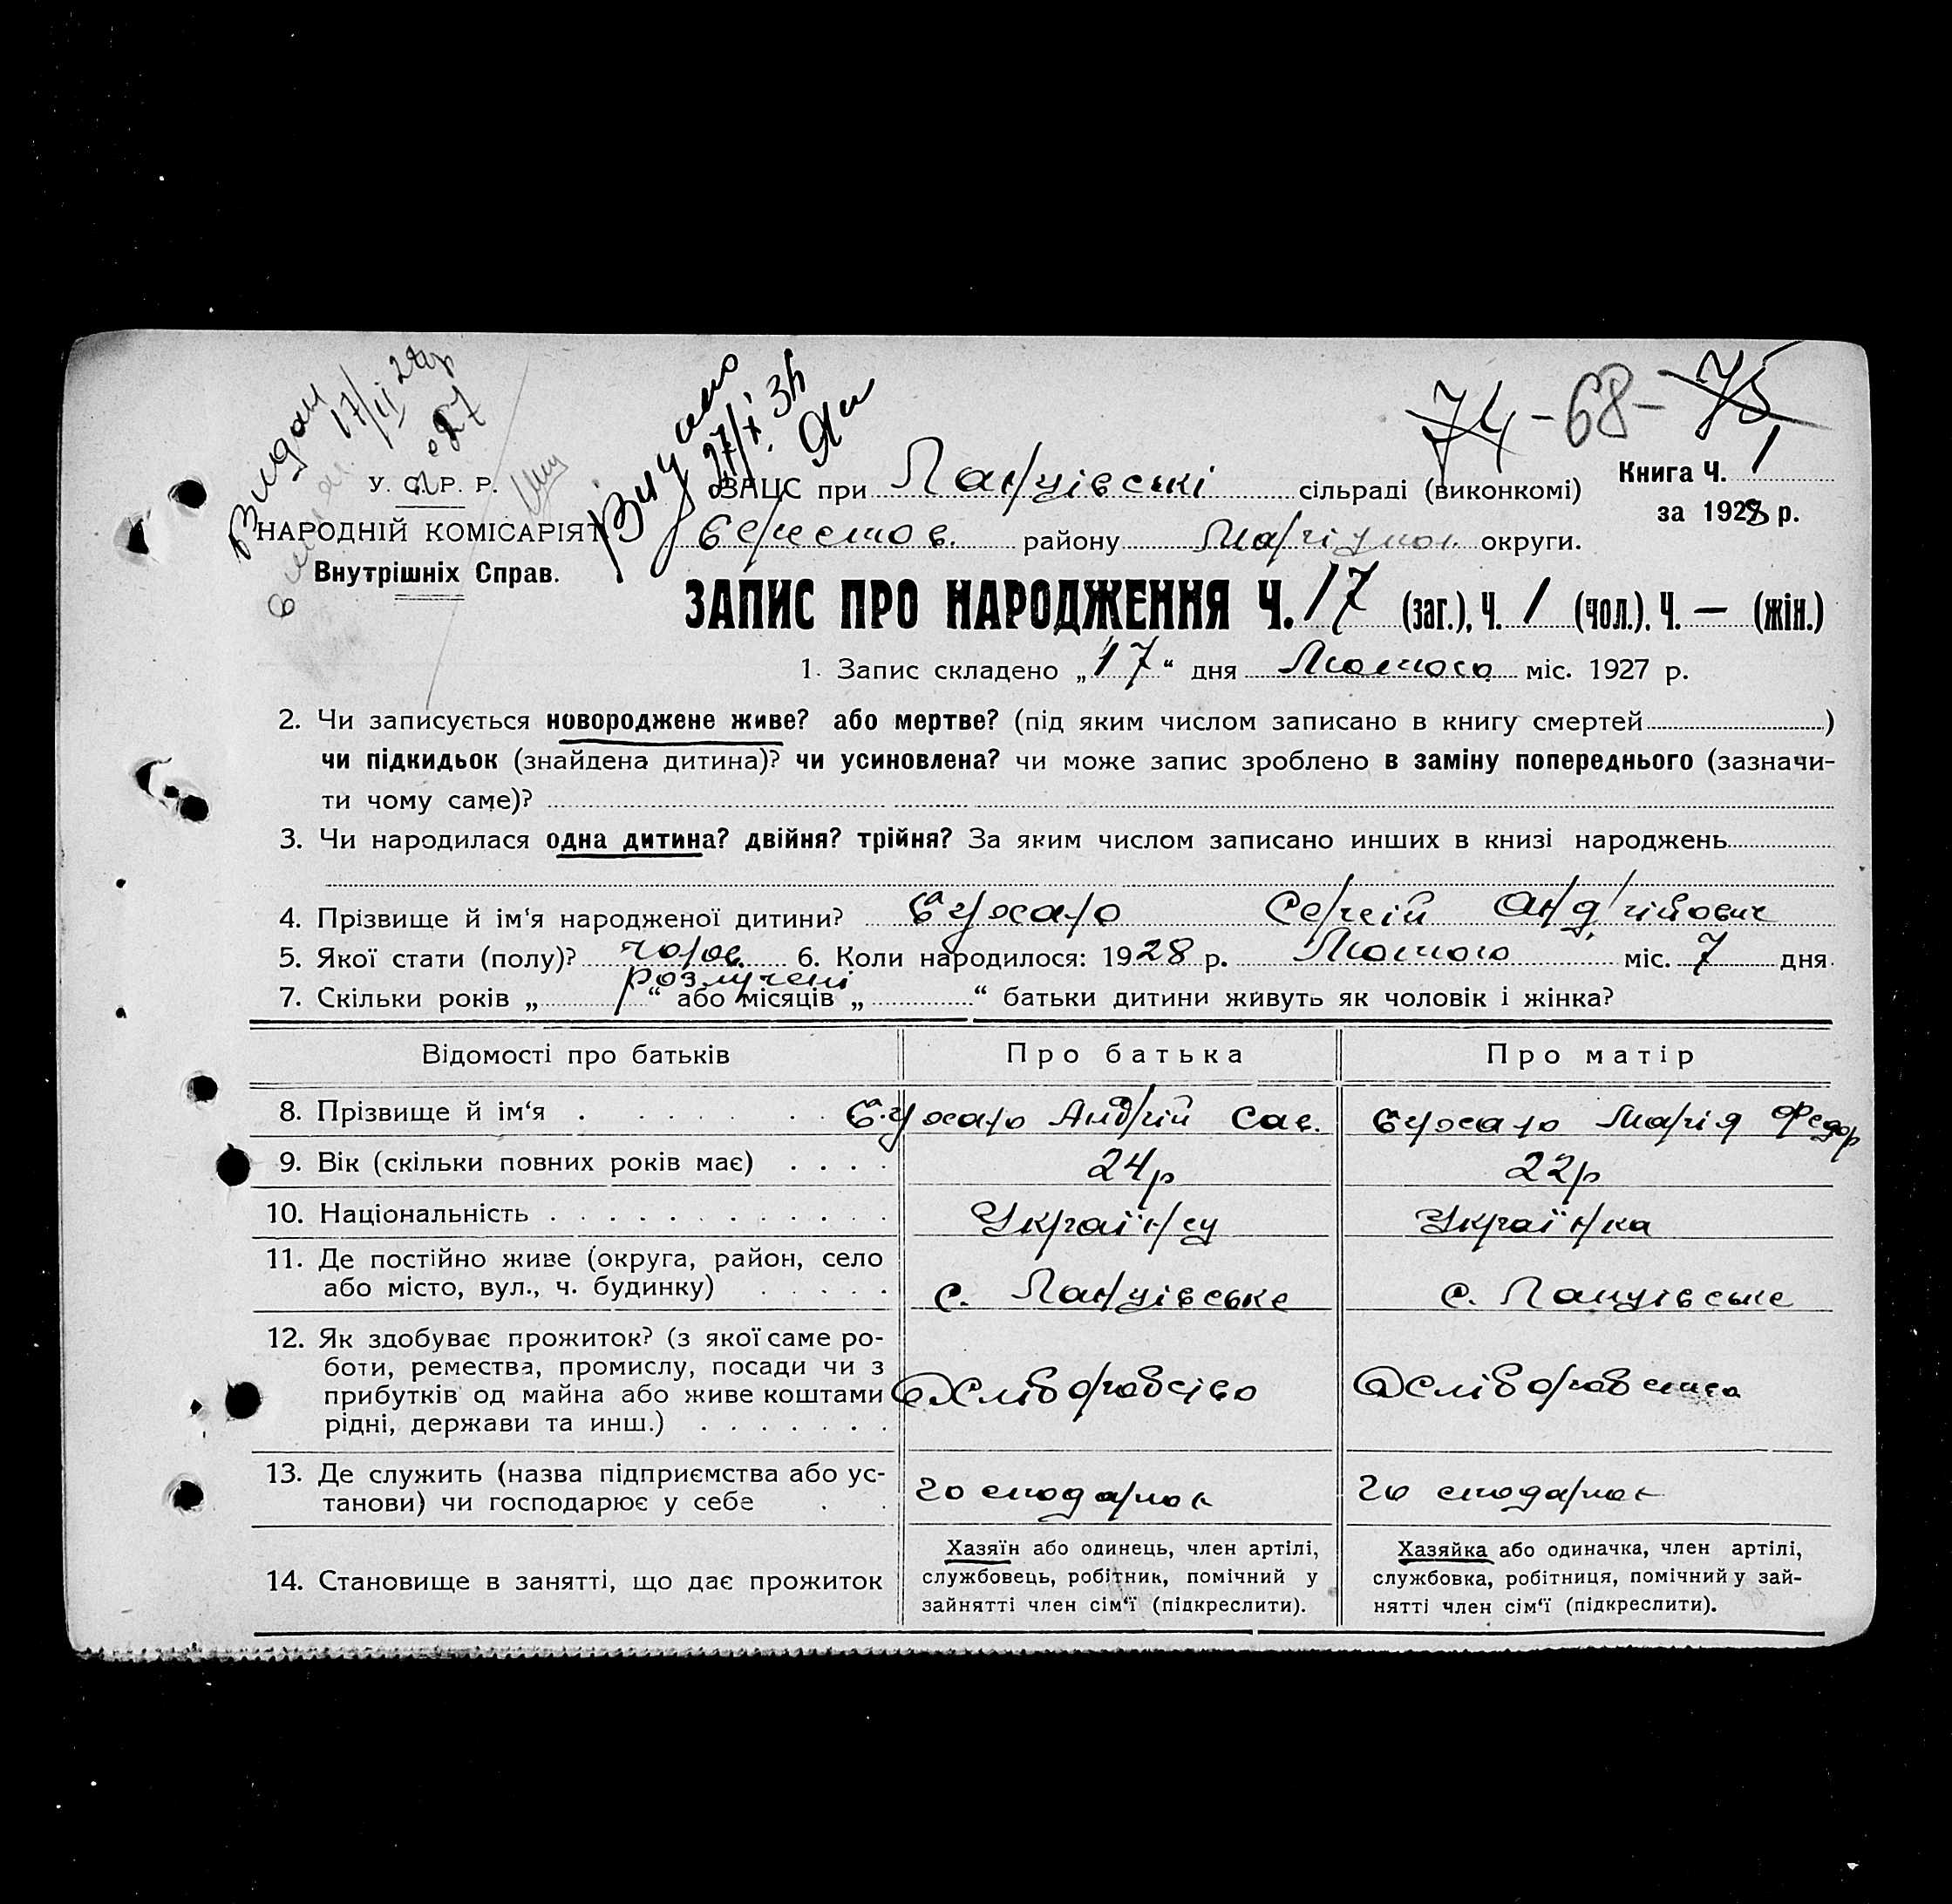 Видан 17/II 28 р
Видано
27/X 34
74 - 68 - 75
У. С. Р. Р.
НАРОДНІЙ КОМІСАРІЯТ
Внутрішніх Справ.
ЗАЦС при сільраді (виконкомі)
Книга Ч. 1
за 1928 р.
району округи.
ЗАПИС ПРО НАРОДЖЕННЯ Ч. 17 (заг.), Ч. 1 (чол.), Ч. — (жін.)
1. Запис складено „17“ дня Лютого міс. 1927 р.
2. Чи записується новороджене живе? або мертве? (під яким числом записано в книгу смертей )
чи підкидьок (знайдена дитина)? чи усиновлена? чи може запис зроблено в заміну попереднього (зазначи-
ти чому саме)?
3. Чи народилася одна дитина? двійня? трійня? За яким числом записано инших в книзі народжень
4. Прізвище й ім‘я народженої дитини? Сергій Андрійович
5. Якої стати (полу)? чолов. 6. Коли народилося: 1928 р. Лютого міс. 7 дня
розлучені
7. Скільки років „ “ або місяців „ “ батьки дитини живуть як чоловік і жінка?
Відомості про батьків Про батька Про матір
8. Прізвище й ім‘я Андрій Сав. Марія Федор
9. Вік (скільки повних років має) 24р 22р
10. Національність Українец Українка
11. Де постійно живе (округа, район, село
або місто, вул., ч. будинку) с. с.
12. Як здобуває прожиток? (з якої саме ро-
боти, ремества, промислу, посади чи з
прибутків од майна або живе коштами
рідні, держави та инш.)
13. Де служить (назва підприємства або ус-
танови) чи господарює у себе
14. Становище в занятті, що дає прожиток
Хазяїн або одинець, член артілі,
службовець, робітник, помічний у
зайнятті член сім‘ї (підкреслити).
Хазяйка або одиначка, член артілі,
службовка, робітниця, помічний у зай-
нятті член сім‘ї (підкреслити).